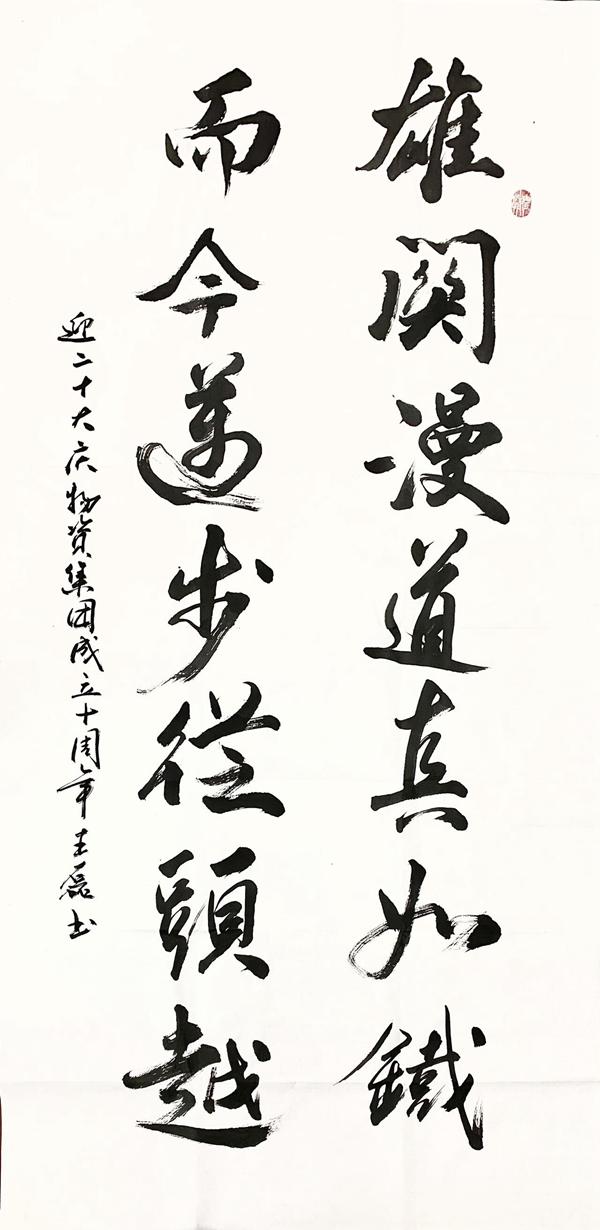 雄關漫道真如鐵
而今邁步從頭越
迎二十大庆物资集团成立十周年王磊书